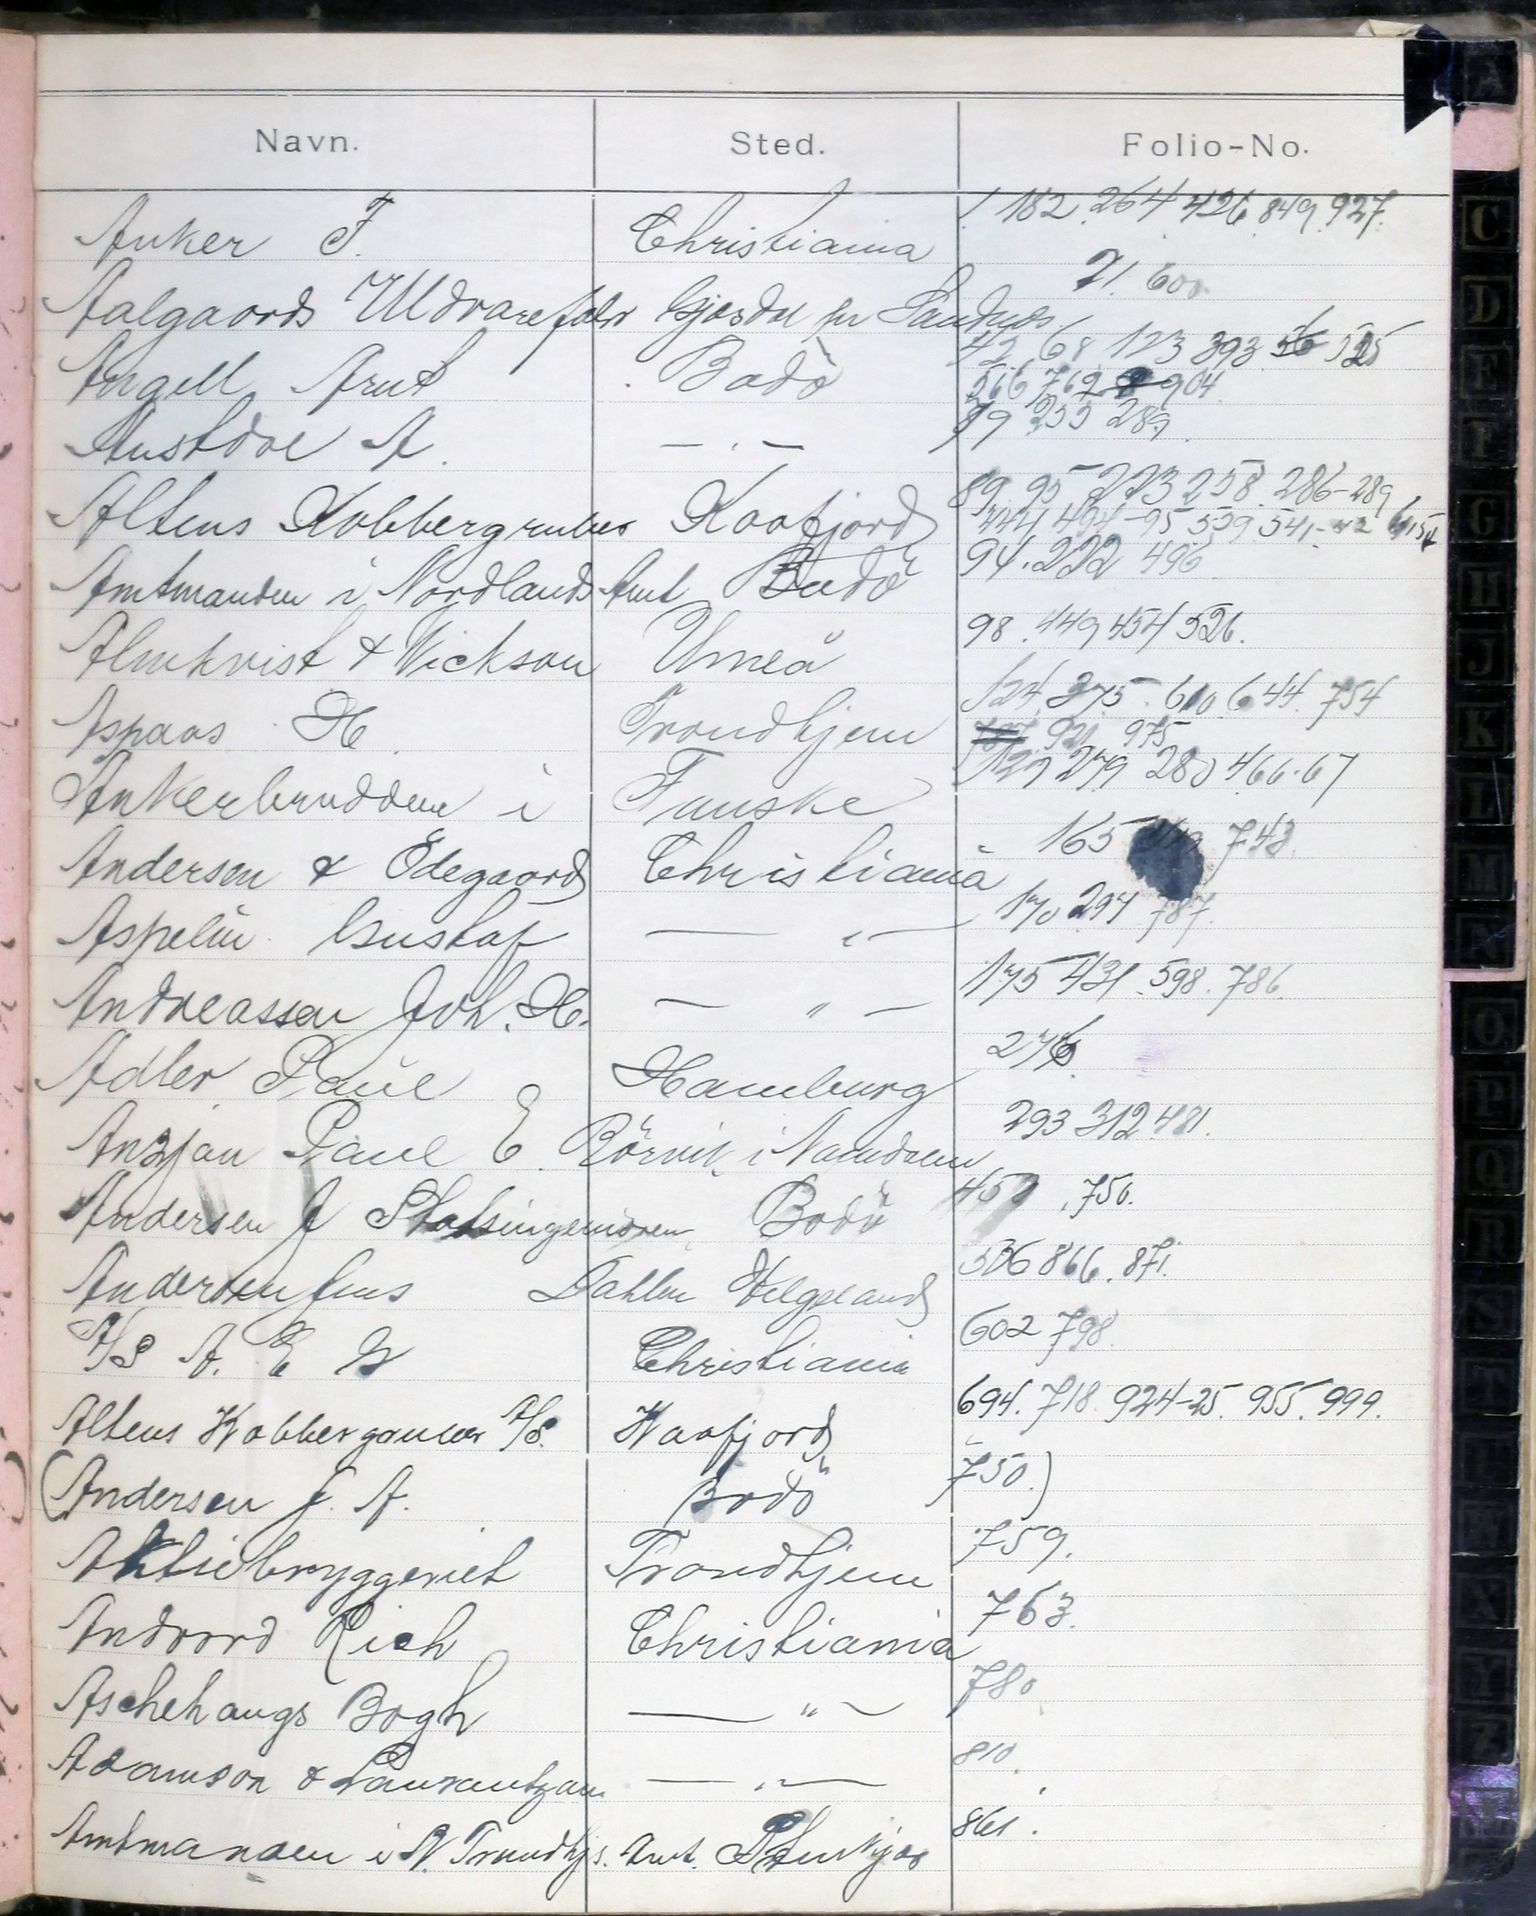 Navn. Sted. Folio-No.
Anker F. Christiania 1 182 264 426 849 927.
Aalgaards Uldvarefabr Gjesdal pr Sandnes 21. 600
Angell Arnt Bodö 42 68 123 393 525
566 762 904.
Austdal A. — . — 79 255 289
Altens Kobbergruber Kaafjord 89. 95 223 258 286-289
444 494-95 539 541-42
Amtmanden i Nordlands Amt Bodö 94. 222 496
Almkvist & Wickson Umeå 98. 449 454 526.
Aspaas H. Trondhjem 124. 375. 610 644. 754
787. 921 975
Ankerbruddene i Fauske 127 279 280 466-67
Andersen & Ödegaard Christiania 165 743
Aspelin Gustaf — " — 170 294 787.
Andreassen Joh. H. — " — 175 431. 598. 786
Adler Paul Hamburg 276
Anzjøn Paul E. Rörvik i Namdalen 293 312 481.
Andersen J Statsingeniøren, Bodö 450 . 750.
Andersen Jens Dahlen Helgeland 536 866. 871.
A/S A. E. G Christiania 602 798
Altens Kobbergruber A/S. Kaafjord 694. 718. 924-25. 955. 999.
(Andersen J. A. Bodö 750.)
Aktiebryggeriet Trondhjem 759.
Andvord Rich Christiania 763.
Aschehaugs Bogh — " — 780
Adamson & — " — 810.
Amtmanden i N. Trondhjs. Amt. 861.